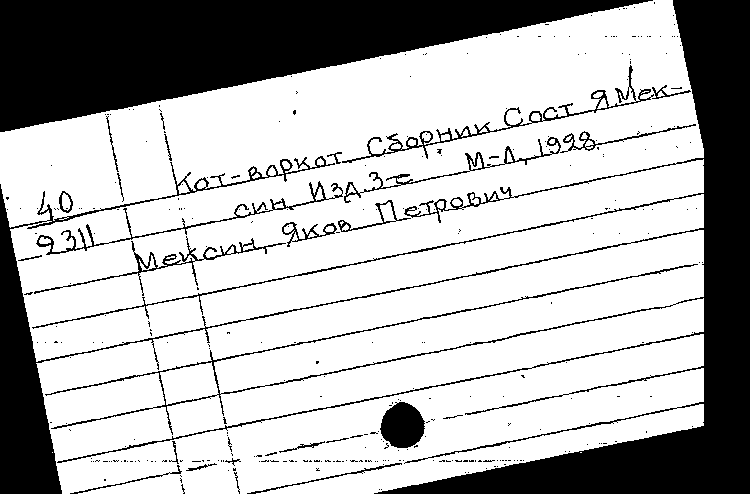 Кот-воркот. Сборник Сост Я.Мек-
40
син. Изд.3-е М-Л, 1928.
9311
Мексин, Яков Петрович